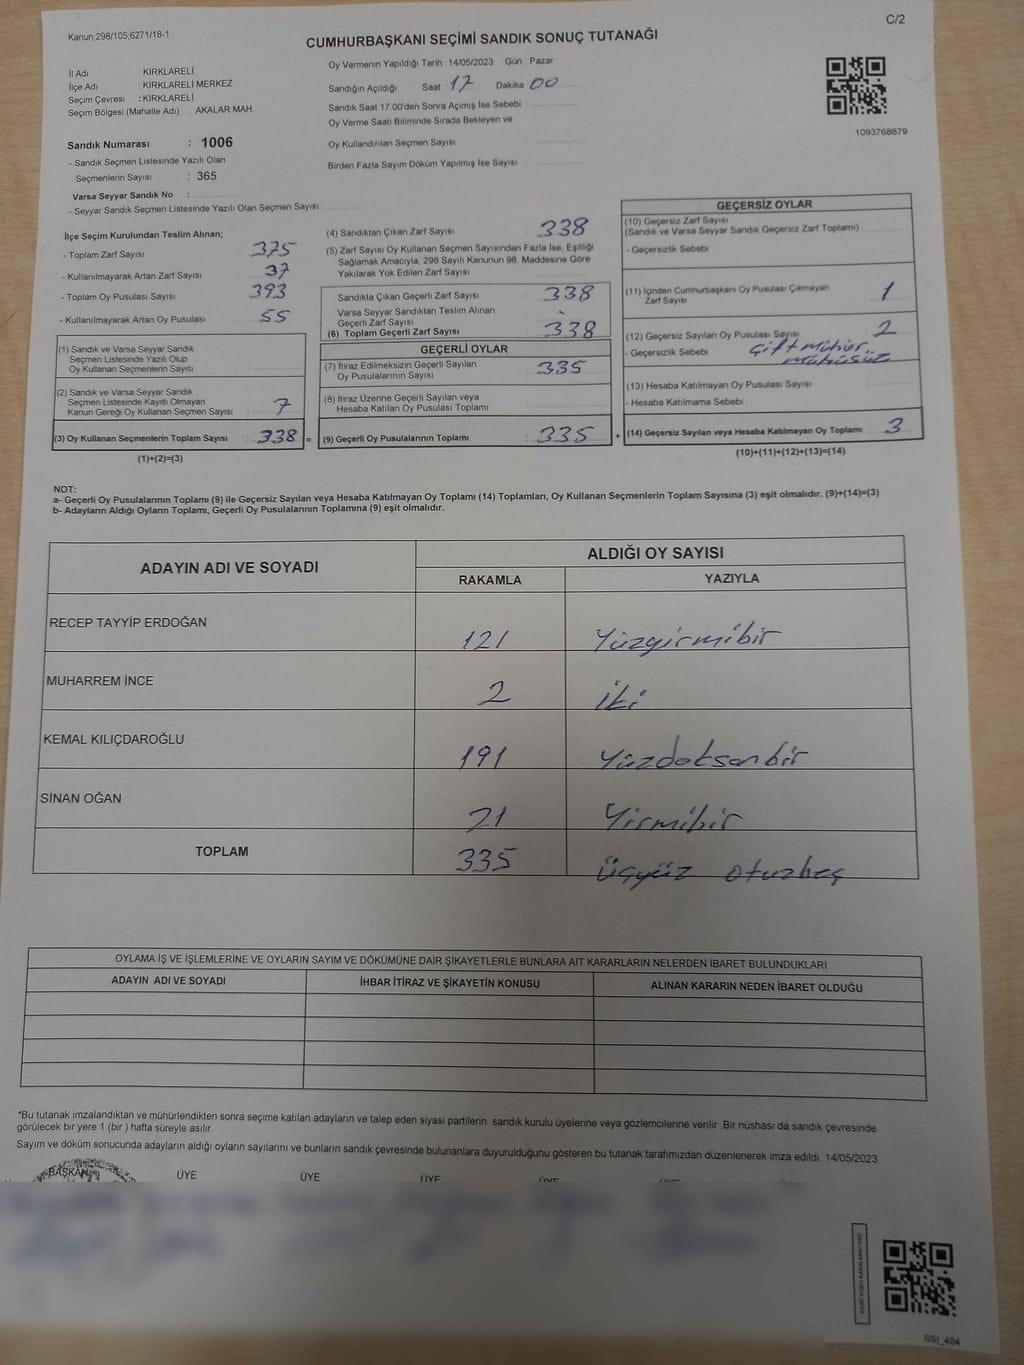 C/2
Kanun,298/105;6271/18-1
CUMHURBAŞKANI SEÇİMİ SANDIK SONUÇ TUTANAĞI
İl Adı : KIRKLARELİ
İlçe Adı : KIRKLARELİ MERKEZ
Seçim Çevresi : KIRKLARELİ
Seçim Bölgesi (Mahalle Adı) : AKALAR MAH.
Sandık Numarası : 1006
- Sandık Seçmen Listesinde Yazılı Olan
Seçmenlerin Sayısı : 365
Varsa Seyyar Sandık No :
- Seyyar Sandık Seçmen Listesinde Yazılı Olan Seçmen Sayısı:
Oy Vermenin Yapıldığı Tarih : 14/05/2023 Gün : Pazar
Sandığın Açıldığı Saat 17 Dakika 00
Sandık Saat 17.00'den Sonra Açımış İse Sebebi
Oy Verme Saati Bitiminde Sırada Bekleyen ve
Oy Kullandırılan Seçmen Sayısı
Birden Fazla Sayım Döküm Yapılmış İse Sayısı
1093768879
İlçe Seçim Kurulundan Teslim Alınan;
- Toplam Zarf Sayısı : 375
- Kullanılmayarak Artan Zarf Sayısı : 37
- Toplam Oy Pusulası Sayısı : 393
- Kullanılmayarak Artan Oy Pusulası : 55
(1) Sandık ve Varsa Seyyar Sandık
Seçmen Listesinde Yazılı Olup
Oy Kullanan Seçmenlerin Sayısı :
(2) Sandık ve Varsa Seyyar Sandık
Seçmen Listesinde Kayıtlı Olmayan
Kanun Gereği Oy Kullanan Seçmen Sayısı : 7
(3) Oy Kullanan Seçmenlerin Toplam Sayısı : 338 =
(1)+(2)=(3)
(4) Sandıktan Çıkan Zarf Sayısı : 338
(5) Zarf Sayısı Oy Kullanan Seçmen Sayısından Fazla İse, Eşitliği
Sağlamak Amacıyla, 298 Sayılı Kanunun 98. Maddesine Göre
Yakılarak Yok Edilen Zarf Sayısı :
Sandıkta Çıkan Geçerli Zarf Sayısı : 338
Varsa Seyyar Sandıktan Teslim Alınan
Geçerli Zarf Sayısı : -
(6) Toplam Geçerli Zarf Sayısı : 338
GEÇERLİ OYLAR
(7) İtiraz Edilmeksizin Geçerli Sayılan
Oy Pusulalarının Sayısı : 335
(8) İtiraz Üzerine Geçerli Sayılan veya
Hesaba Katılan Oy Pusulası Toplamı :
(9) Geçerli Oy Pusulalarının Toplamı : 335 +
GEÇERSİZ OYLAR
(10) Geçersiz Zarf Sayısı
(Sandık ve Varsa Seyyar Sandık Geçersiz Zarf Toplamı)
- Geçersizlik Sebebi
(11) İçinden Cumhurbaşkanı Oy Pusulası Çıkmayan
Zarf Sayısı 1
(12) Geçersiz Sayılan Oy Pusulası Sayısı 2
- Geçersizlik Sebebi Çift mühür,
mühüsüz
(13) Hesaba Katılmayan Oy Pusulası Sayısı
- Hesaba Katılmama Sebebi
(14) Geçersiz Sayılan veya Hesaba Katılmayan Oy Toplamı 3
(10)+(11)+(12)+(13)=(14)
NOT:
a- Geçerli Oy Pusulalarının Toplamı (9) ile Geçersiz Sayılan veya Hesaba Katılmayan Oy Toplamı (14) Toplamları, Oy Kullanan Seçmenlerin Toplam Sayısına (3) eşit olmalıdır. (9)+(14)=(3)
b- Adayların Aldığı Oyların Toplamı, Geçerli Oy Pusulalarının Toplamına (9) eşit olmalıdır.
ADAYIN ADI VE SOYADI ALDIĞI OY SAYISI
RAKAMLA YAZIYLA
RECEP TAYYİP ERDOĞAN 121 Yüzgirmibir
MUHARREM İNCE 2 iki
KEMAL KILIÇDAROĞLU 191 Yüzdoksanbir
SİNAN OĞAN 21 Yirmibir
TOPLAM 335 üçyüz otuzbeş
OYLAMA İŞ VE İŞLEMLERİNE VE OYLARIN SAYIM VE DÖKÜMÜNE DAİR ŞİKAYETLERLE BUNLARA AİT KARARLARIN NELERDEN İBARET BULUNDUKLARI
ADAYIN ADI VE SOYADI İHBAR İTİRAZ VE ŞİKAYETİN KONUSU ALINAN KARARIN NEDEN İBARET OLDUĞU
*Bu tutanak imzalandıktan ve mühürlendikten sonra seçime katılan adayların ve talep eden siyasi partilerin sandık kurulu üyelerine veya gözlemcilerine verilir. Bir nüshası da sandık çevresinde
görülecek bir yere 1 (bir ) hafta süreyle asılır.
Sayım ve döküm sonucunda adayların aldığı oyların sayılarını ve bunların sandık çevresinde bulunanlara duyurulduğunu gösteren bu tutanak tarafımızdan düzenlenerek imza edildi. 14/05/2023
BAŞKAN ÜYE ÜYE ÜYE ÜYE ÜYE
SSİ_404